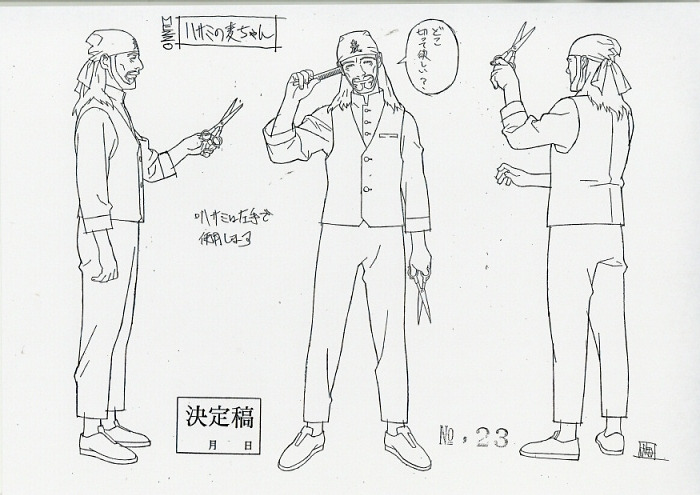 MEMO
ハサミの麦ちゃん
どこ
切って欲しい?
ハサミは左手で
使用しまーす
決定稿
月 日
No. 23